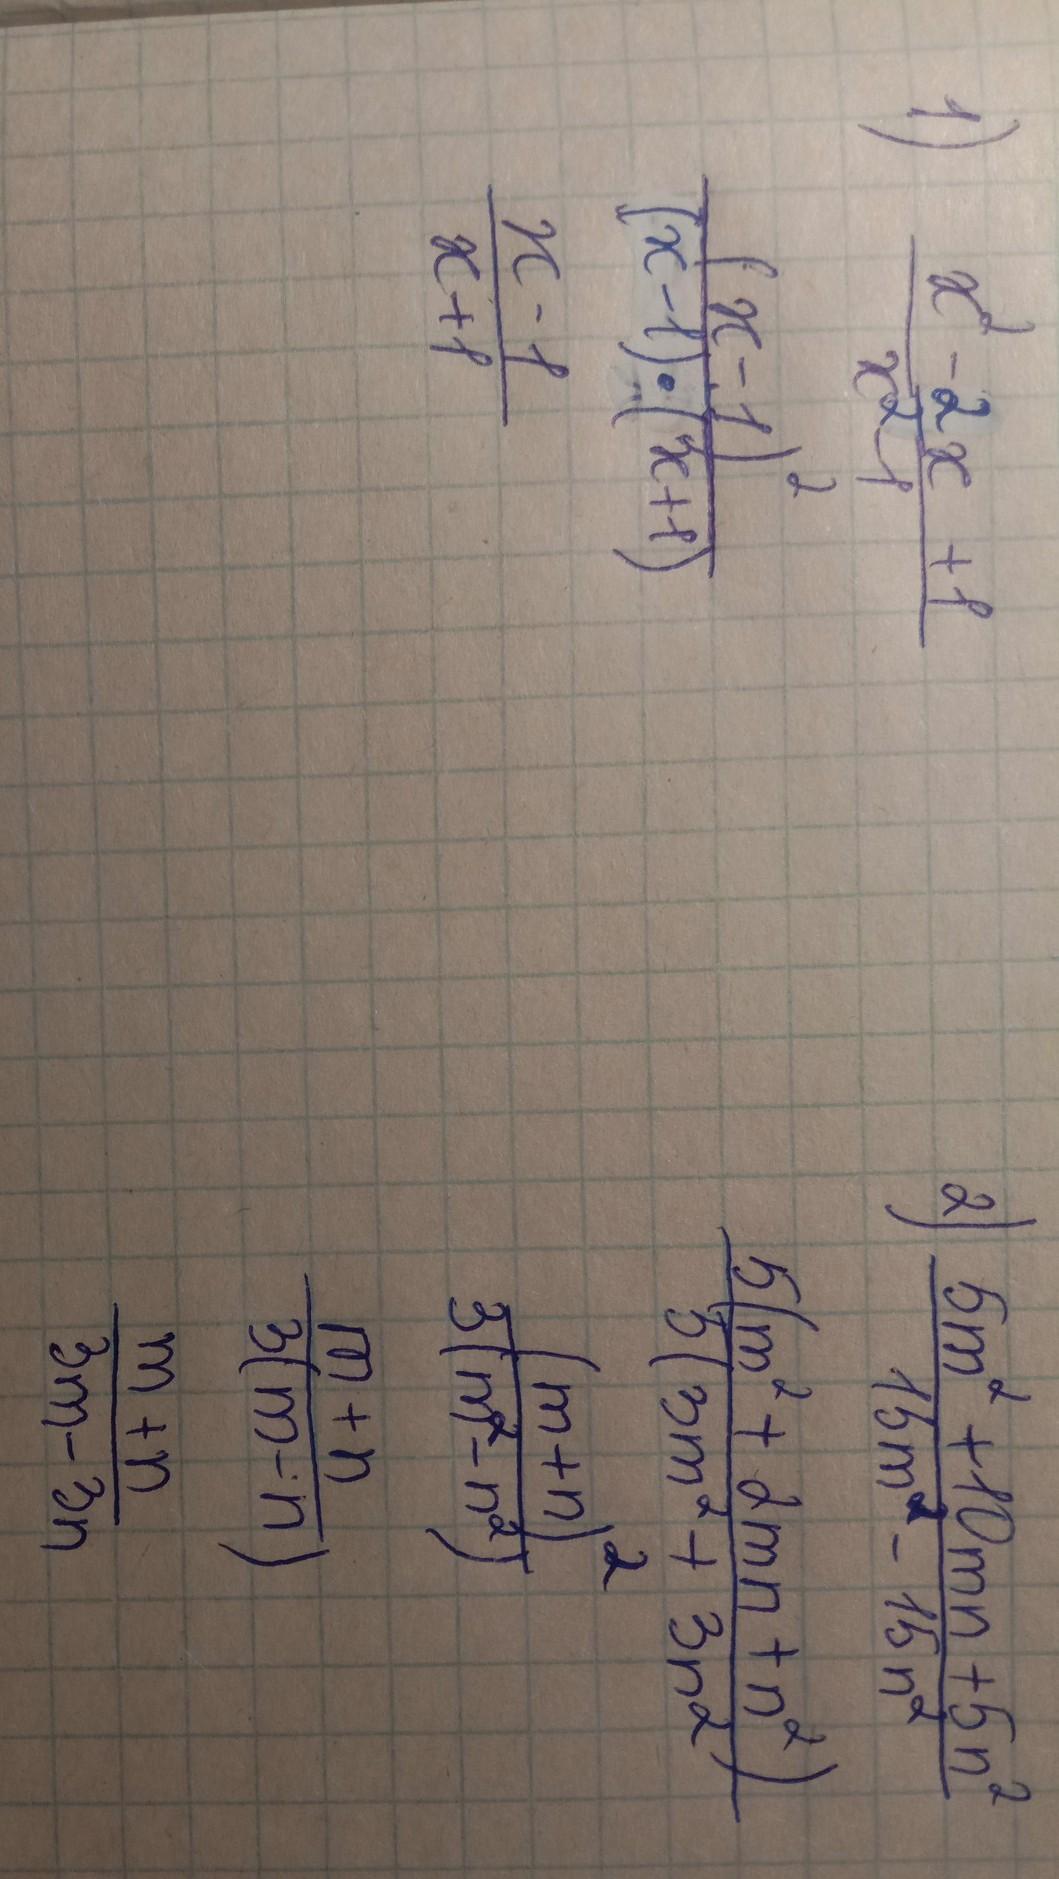 1) x² - 2x + 1
x² - 1
(x - 1)²
(x - 1) · (x + 1)
x - 1
x + 1
2) 5m² + 10mn + 5n²
15m² - 15n²
5(m² + 2mn + n²)
5(3m² + 3n²)
(m + n)²
3(m² - n²)
m + n
3(m - n)
m + n
3m - 3n